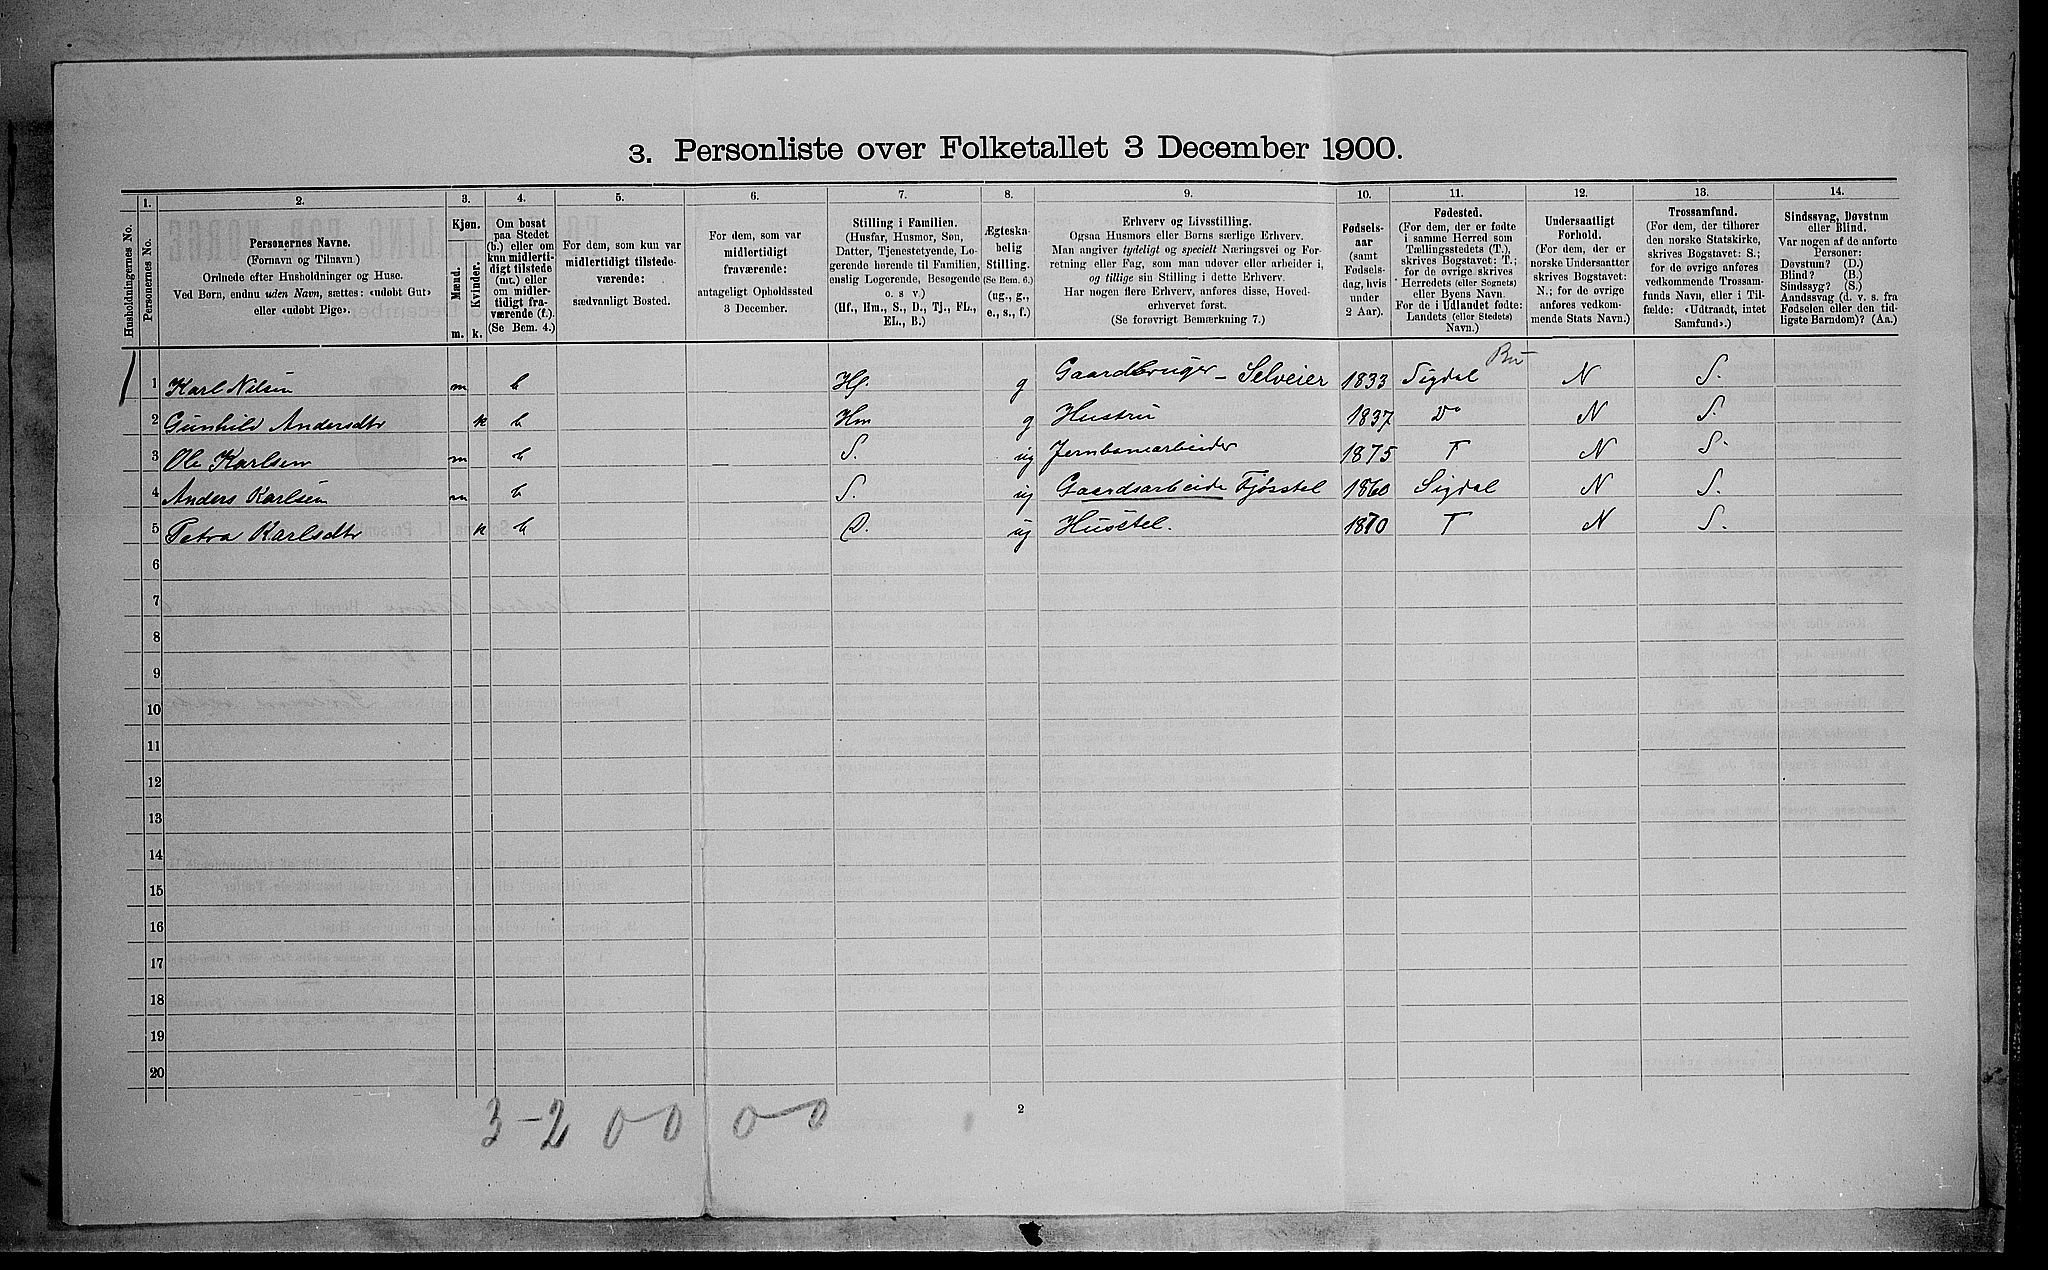 3. Personliste over Folketallet 3 December 1900.
1. 2. 3. 4. 5. 6. 7. 8. 9. 10. 11. 12. 13. 14.
Husholdningernes No.
Personernes No.
Personernes Navne.
(Fornavn og Tilnavn)
Ordnede efter Husholdninger og Huse.
Ved Børn, endnu uden Navn, sættes: «udøbt Gut»
eller «udøbt Pige».
Kjøn.
Mænd. Kvinder.
m. k.
Om bosat
paa Stedet
(b.) eller om
kun midler-
tidigt tilstede
(mt.) eller
om midler-
tidigt fra-
værende (f.).
(Se Bem. 4.)
For dem, som kun var
midlertidigt tilstede-
værende:
sædvanligt Bosted.
For dem, som var
midlertidigt
fraværende:
antageligt Opholdssted
3 December.
Stilling i Familien.
(Husfar, Husmor, Søn,
Datter, Tjenestetyende, Lo-
gerende hørende til Familien,
enslig Logerende, Besøgende
o. s v.)
(Hf., Hm., S., D., Tj., FL.,
EL., B.)
Ægteska-
belig
Stilling.
(Se Bem. 6.)
(ug., g.,
e., s., f.)
Erhverv og Livsstilling.
Ogsaa Husmors eller Børns særlige Erhverv.
Man angiver tydeligt og specielt Næringsvei og For-
retning eller Fag, som man udøver eller arbeider i,
og tillige sin Stilling i dette Erhverv.
Har nogen flere Erhverv, anføres disse, Hoved-
erhvervet først.
(Se forøvrigt Bemærkning 7.)
Fødsels-
aar
(samt
Fødsels-
dag, hvis
under
2 Aar).
Fødested.
(For dem, der er fødte
i samme Herred som
Tællingsstedets (T.),
skrives Bogstavet: T.;
for de øvrige skrives
Herredets (eller Sognets)
eller Byens Navn.
For de i Udlandet fødte:
Landets (eller Stedets)
Navn.)
Undersaatligt
Forhold.
(For dem, der er
norske Undersaatter
skrives Bogstavet:
N.; for de øvrige
anføres vedkom-
mende Stats Navn.)
Trossamfund.
(For dem, der tilhører
den norske Statskirke,
skrives Bogstavet: S.;
for de øvrige anføres
vedkommende Trossam-
funds Navn, eller i Til-
fælde: «Udtraadt, intet
Samfund».)
Sindssvag, Døvstum
eller Blind.
Var nogen af de anførte
Personer:
Døvstum? (D.)
Blind? (B.)
Sindssyg? (S.)
Aandssvag (d. v. s. fra
Fødselen eller den tid-
ligste Barndom)? (Aa.)
1 1 Karl Nilsen m b Hf. g Gaardbruger – Selveier 1833 Sigdal Bu N S.
2 Gunhild Andersdtr k b Hm g Hustru 1837 Do N S.
3 Ole Karlsen m b S. ug Jernbanearbeider 1875 T N S.
4 Anders Karlsen m b S. ug Gaardsarbeide Fjøsstel 1860 Sigdal N S.
5 Petra Karlsdtr k b D. ug Husstel. 1870 T N S.
6
7
8
9
10
11
12
13
14
15
16
17
18
19
20
2
3 – 2 0 0 0 0